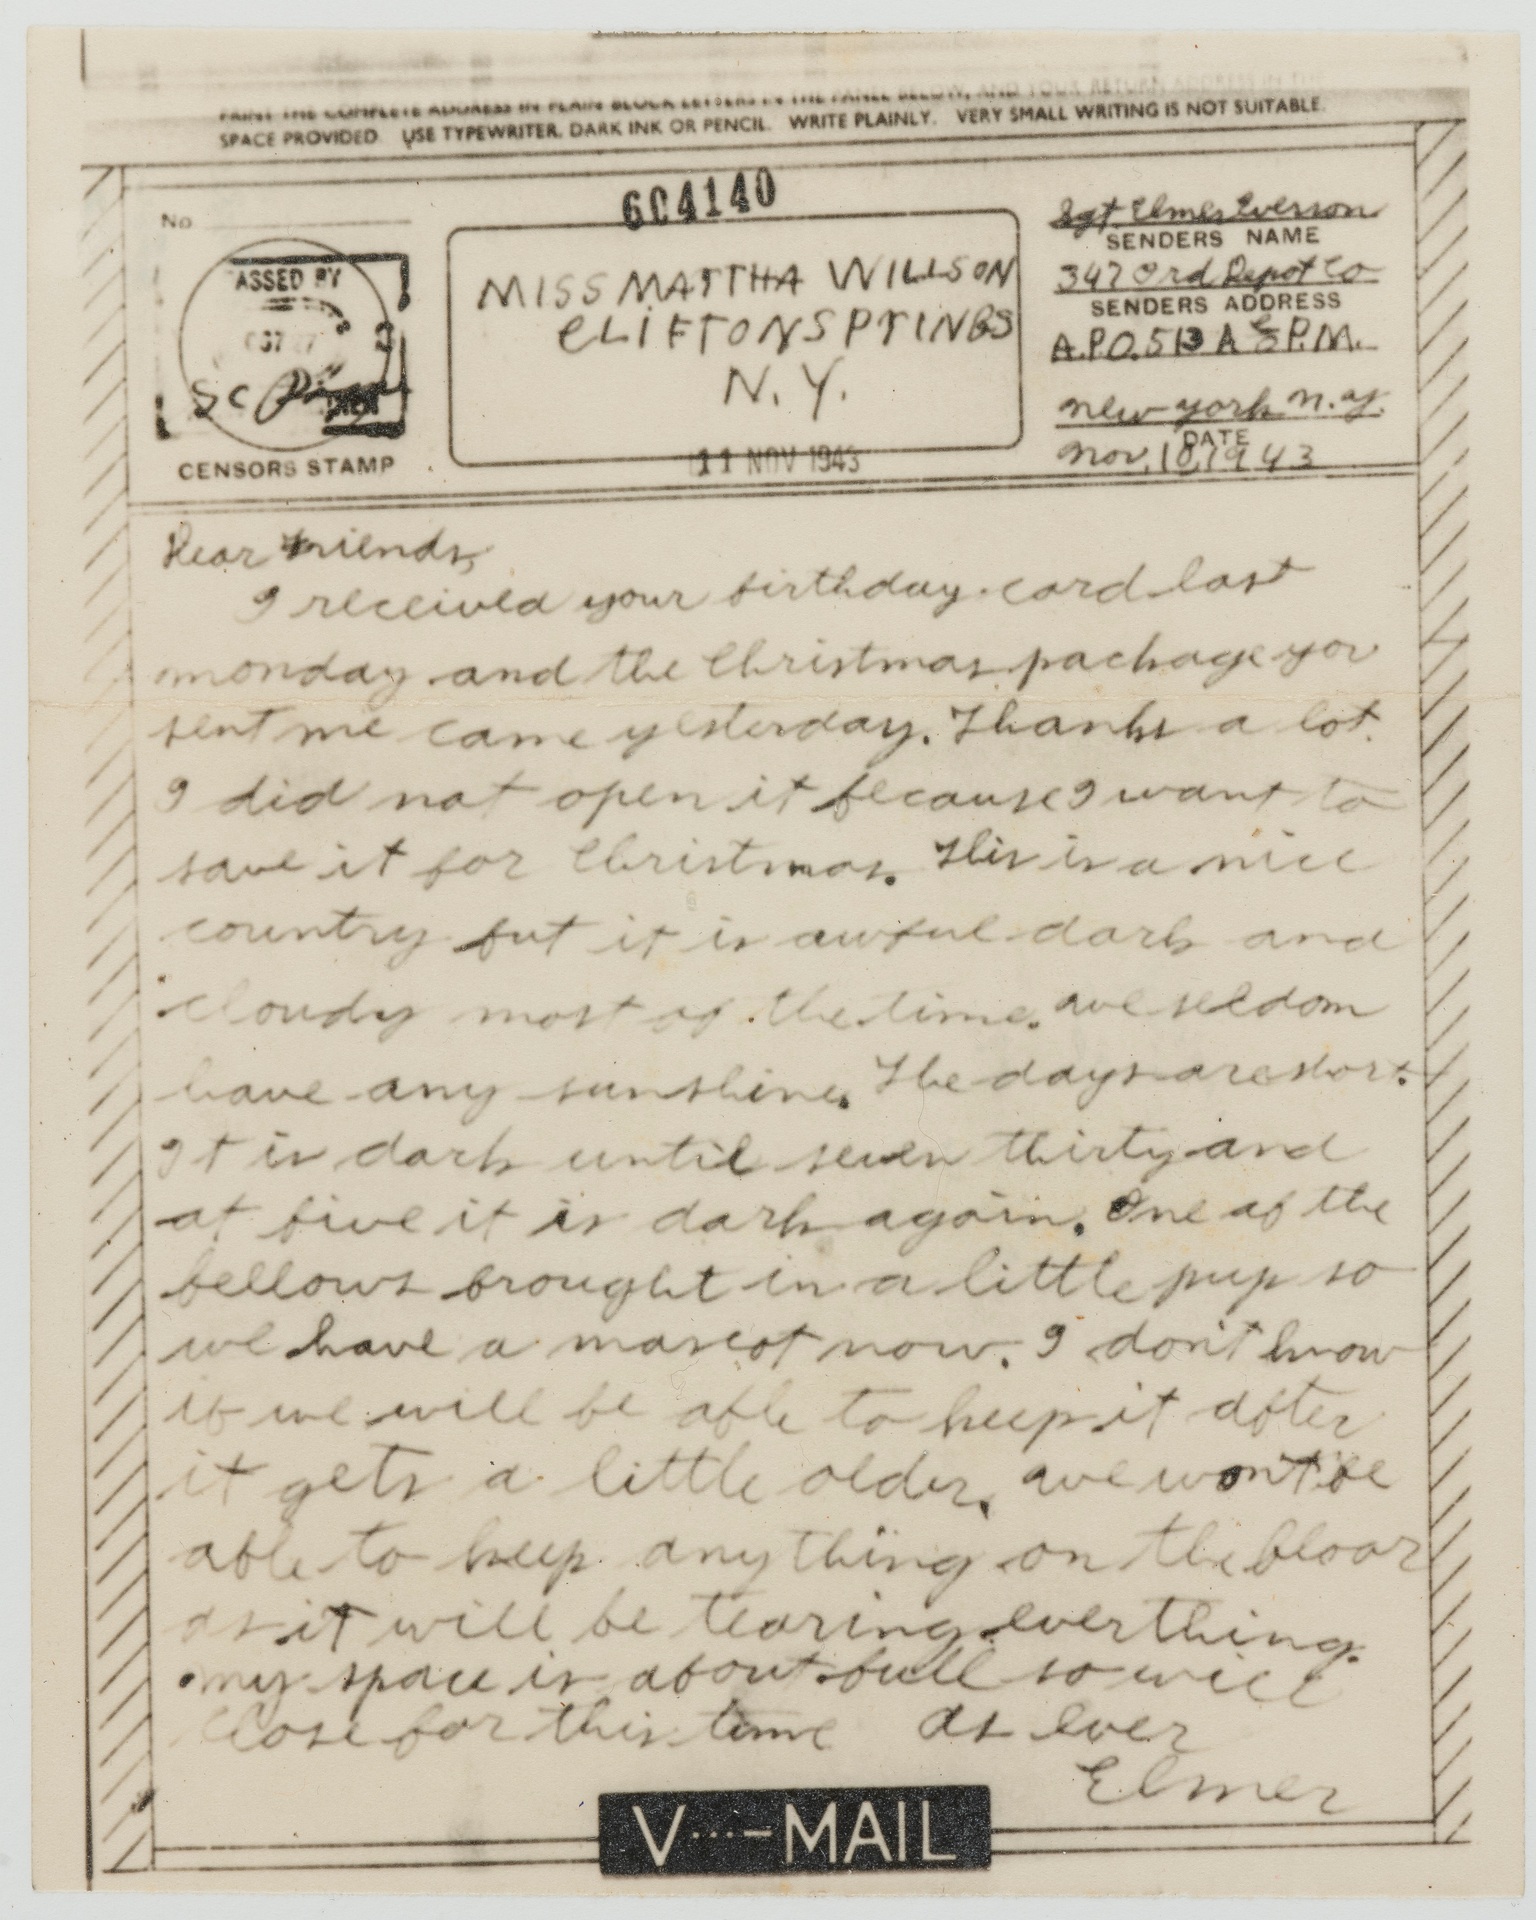 PRINT THE COMPLETE ADDRESS IN PLAIN BLOCK LETTERS IN THE PANEL BELOW, AND YOUR RETURN ADDRESS IN THE
SPACE PROVIDED. USE TYPEWRITER, DARK INK OR PENCIL. WRITE PLAINLY. VERY SMALL WRITING IS NOT SUITABLE.
No.
604140
ASSED BY
CENSORS STAMP
MISS MARTHA WILLSON
CLIFTON SPRINGS
N. Y.
11 NOV 1943
Sgt Elmer Everson
SENDERS NAME
347 Ord Depot Co
SENDERS ADDRESS
A.P.O. 513 A % P.M.
New York N.Y.
DATE
Nov. 10, 1943
Dear Friends,
I received your birthday card last
monday and the Christmas package you
sent me came yesterday. Thanks a lot.
I did not open it because I want to
save it for Christmas. This is a nice
country but it is awful dark and
cloudy most of the time. We seldom
have any sunshine. The days are short.
It is dark until seven thirty and
at five it is dark again. One of the
fellows brought in a little pup so
we have a mascot now. I don't know
if we will be able to keep it after
it gets a little older. We won't be
able to keep anything on the floor
as it will be tearing everthing.
My space is about full so will
close for this time As Ever
Elmer
V···—MAIL